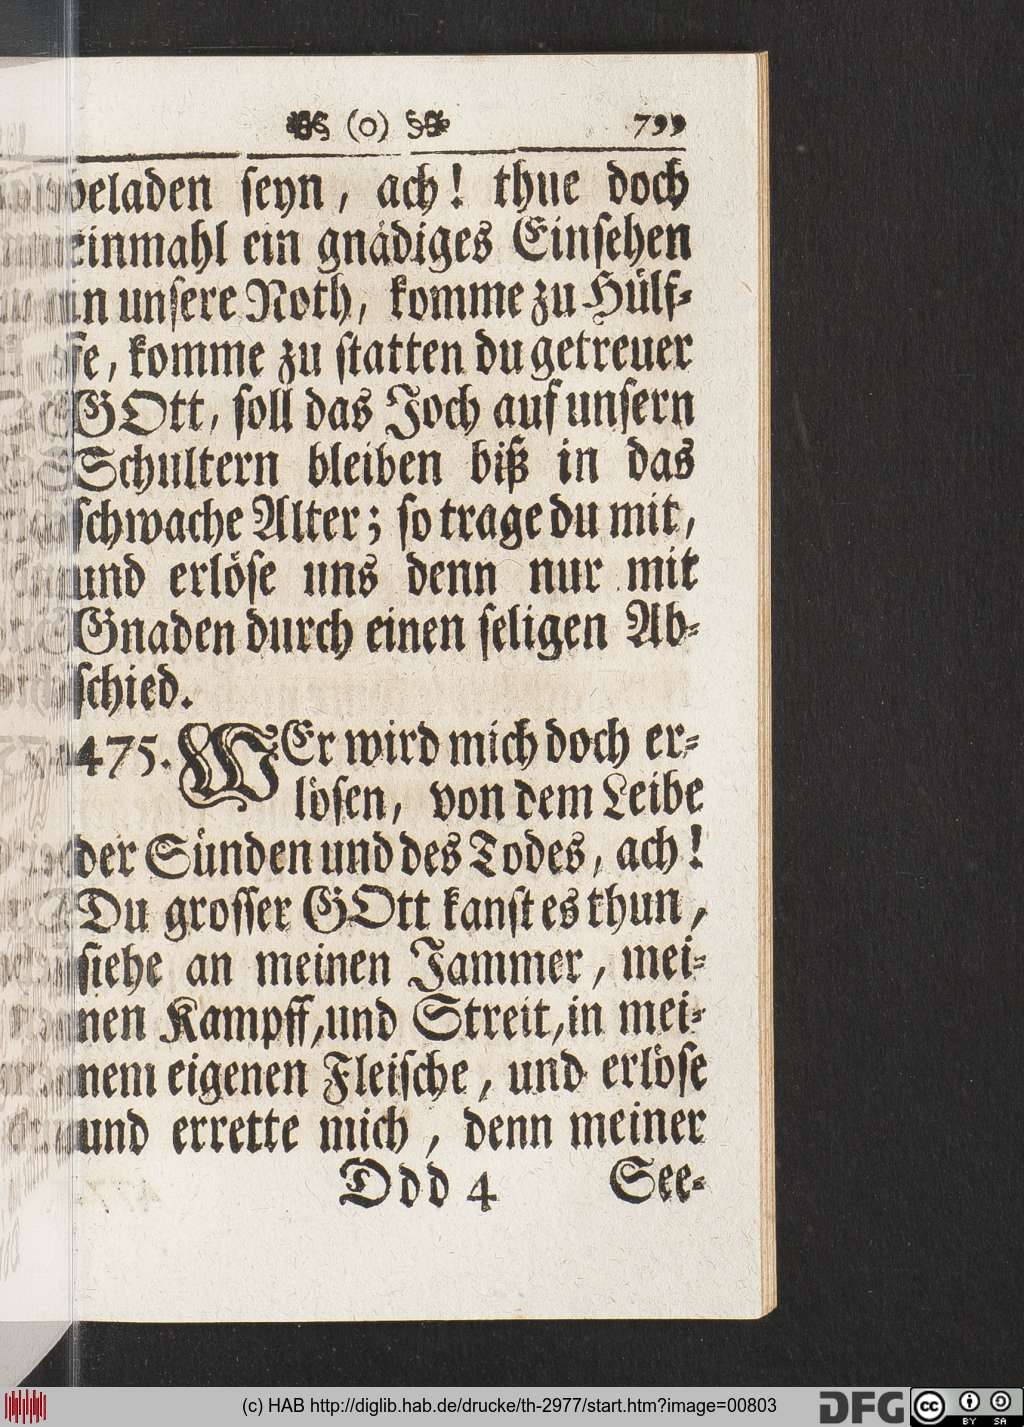 (o) 799
beladen seyn, ach! thue doch
einmahl ein gnädiges Einsehen
in unsere Noth, komme zu Hülf-
fe, komme zu statten du getreuer
GOtt, soll das Joch auf unsern
Schultern bleiben biß in das
schwache Alter; so trage du mit,
und erlöse uns denn nur mit
Gnaden durch einen seligen Ab-
schied.
475. WEr wird mich doch er-
lösen, von dem Leibe
der Sünden und des Todes, ach!
Du grosser GOtt kanst es thun,
siehe an meinen Jammer, mei-
nen Kampff, und Streit, in mei-
nem eigenen Fleische, und erlöse
und errette mich, denn meiner
Ddd 4 See-
(c) HAB http://diglib.hab.de/drucke/th-2977/start.htm?image=00803
DFG
cc BY SA